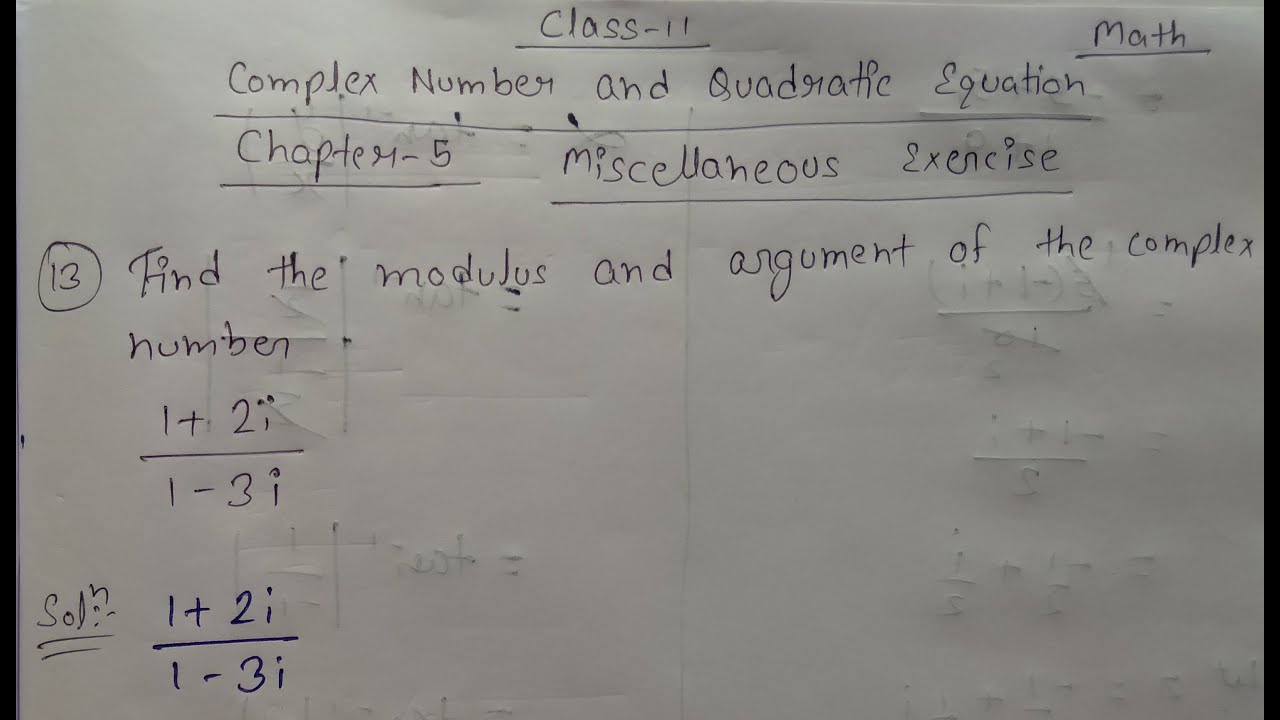 Class-11
Math
Complex Number and Quadratic Equation
Chapter-5 Miscellaneous Exercise
13 Find the modulus and argument of the complex
number
1+ 2i
1-3i
Solⁿ:- 1+2i
1-3i